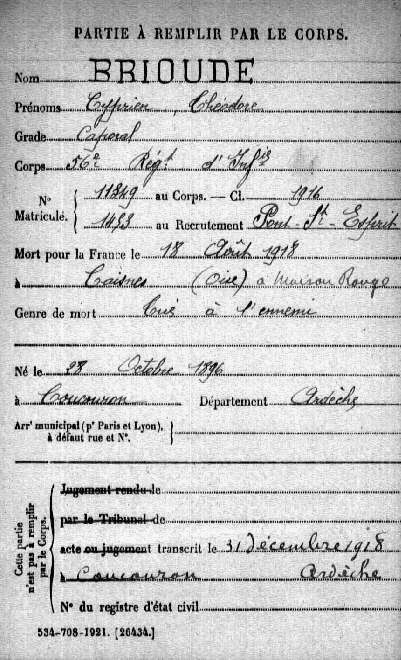 PARTIE À REMPLIR PAR LE CORPS.
Nom BRIOUDE
Prénoms Cyprien, Théodore
Grade Caporal
Corps 56e Régt d'Infie
N° Matricule. { 11849 au Corps. — Cl. 1916
1453 au Recrutement Pont-St-Esprit
Mort pour la France le 18 Août 1918
à Caisnes (Oise) à Maison Rouge
Genre de mort Tué à l'ennemi
Né le 28 Octobre 1896
à Coucouron Département Ardèche
Arrt municipal (pr Paris et Lyon), à défaut rue et N°.
Cette partie n'est pas à remplir par le Corps.
Jugement rendu le
par le Tribunal de
acte ou jugement transcrit le 31 décembre 1918
à Coucouron Ardèche
N° du registre d'état civil
534-708-1921. [26434.]